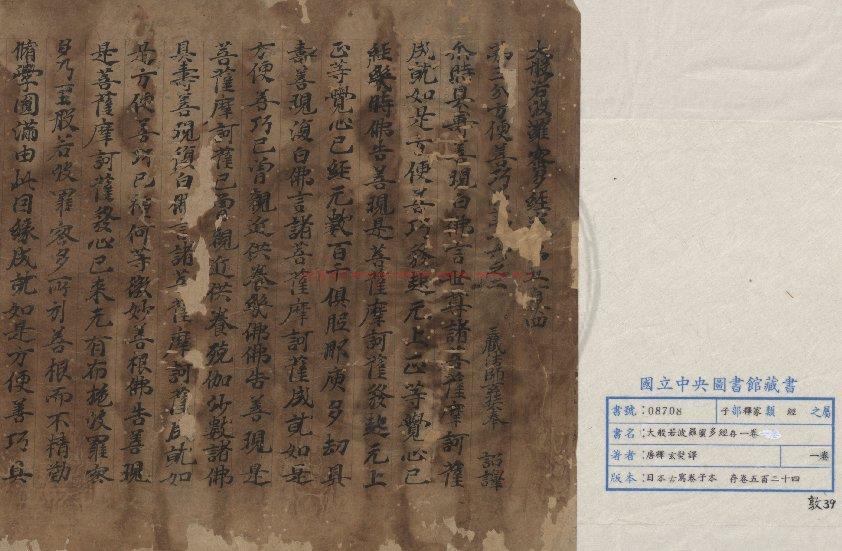 大般若波羅蜜多經卷第五百廿四
第三分方便善巧品第廿六之二
三藏法師玄奘奉 詔譯
尒時具壽善現白佛言世尊諸菩薩摩訶薩
成就如是方便善巧發趣无上正等覺心已
經幾時佛告善現是菩薩摩訶薩發趣无上
正等覺心已經无數百千俱胝那庾多劫具
壽善現復白佛言諸菩薩摩訶薩成就如是
方便善巧已曾親近供養幾佛佛告善現是
菩薩摩訶薩已曾親近供養殑伽沙數諸佛
具壽善現復白佛言諸菩薩摩訶薩成就如
是方便善巧已種何等微妙善根佛告善現
是菩薩摩訶薩發心已来无有布施波羅蜜
多乃至般若波羅蜜多所引善根而不精勤
脩學圓滿由此因緣成就如是方便善巧具
國立中央圖書館藏書
書號：08708 子部釋家類 經 之屬
書名：大般若波羅蜜多經存一卷
著者：唐釋玄奘譯 一卷
版本：日本古寫卷子本 存卷五百二十四
敦39